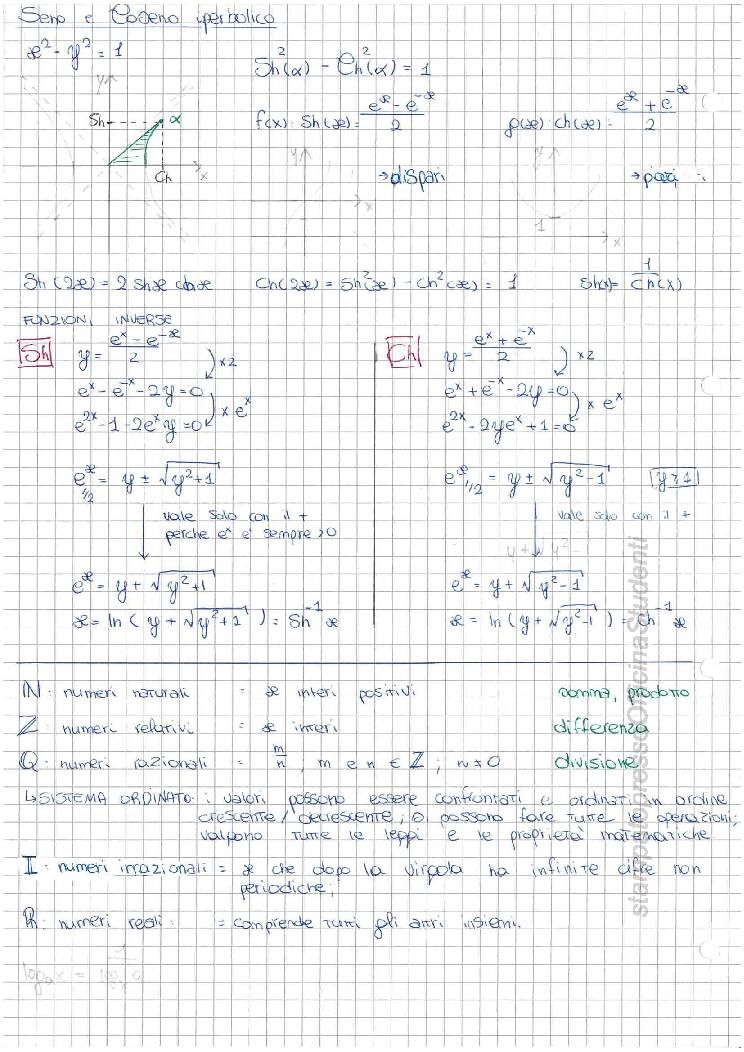 Seno e Coseno iperbolico
x² - y² = 1
Sh²(α) - Ch²(α) = 1
y
Sh
α
Ch
x
f(x): Sh(x) = (eˣ - e⁻ˣ)/2
g(x): Ch(x) = (eˣ + e⁻ˣ)/2
→ dispari
→ pari
y
x
1
x
Sh(2x) = 2 shx chx
Ch(2x) = Sh²(x) - Ch²(x) = 1
Sh(x) = 1/Ch(x)
FUNZIONI INVERSE
Sh
y = (eˣ - e⁻ˣ)/2
x2
eˣ - e⁻ˣ - 2y = 0
x eˣ
e²ˣ - 1 - 2eˣy = 0
eˣ 1/2 = y ± √(y²+1)
vale solo con il +
perche eˣ e' sempre >0
eˣ = y + √(y²+1)
x = ln(y + √(y²+1)) = Sh⁻¹x
Ch
y = (eˣ + e⁻ˣ)/2
x2
eˣ + e⁻ˣ - 2y = 0
x eˣ
e²ˣ - 2yeˣ + 1 = 0
eˣ 1/2 = y ± √(y²-1)
y ≥ 1
vale solo con il +
eˣ = y + √(y²-1)
x = ln(y + √(y²-1)) = Ch⁻¹x
N: numeri naturali = x interi positivi somma, prodotto
Z: numeri relativi = x interi differenza
Q: numeri razionali = m/n, m e n ∈ Z; n ≠ 0 divisione
↳ SISTEMA ORDINATO: i valori possono essere confrontati e ordinati in ordine
crescente/decrescente; si possono fare tutte le operazioni;
valgono tutte le leggi e le proprietà matematiche
I: numeri irrazionali = x che dopo la virgola ha infinite cifre non
periodiche;
R: numeri reali: = comprende tutti gli altri insiemi.
stampatopressoOfficinaStudenti